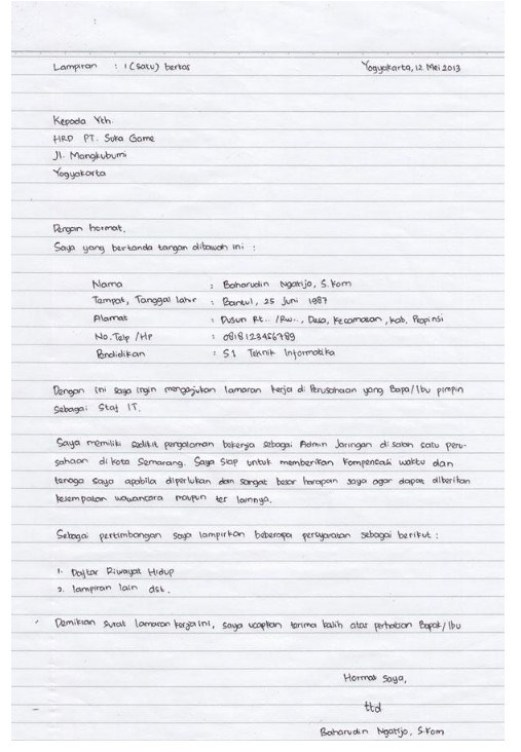 Lampiran : 1 (satu) berkas Yogyakarta, 12 Mei 2013
Kepada Yth.
HRD PT. Suka Game
Jl. Mangkubumi
Yogyakarta
Dengan hormat,
Saya yang bertanda tangan dibawah ini :
Nama : Baharudin Ngatijo, S.Kom
Tempat, Tanggal lahir : Bantul, 25 Juni 1987
Alamat : Dusun Rt.. /Rw.., Desa, Kecamatan, Kab, Propinsi
No. Telp /HP : 0818123456789
Pendidikan : S1 Teknik Informatika
Dengan ini saya ingin mengajukan lamaran kerja di Perusahaan yang Bapa/Ibu pimpin
Sebagai Staf IT.
Saya memiliki sedikit pengalaman bekerja sebagai Admin Jaringan di salah satu peru-
sahaan di kota Semarang. Saya Siap untuk memberikan kompensasi waktu dan
tenaga saya apabila diperlukan dan sangat besar harapan saya agar dapat diberikan
kesempatan wawancara maupun tes lainnya.
Sebagai pertimbangan saya lampirkan beberapa persyaratan sebagai berikut :
1. Daftar Riwayat Hidup
2. lampiran lain dst.
Demikian surat lamaran kerja ini, saya ucapkan terima kasih atas perhatian Bapak/Ibu
Hormat Saya,
ttd
Baharudin Ngatijo, S.Kom